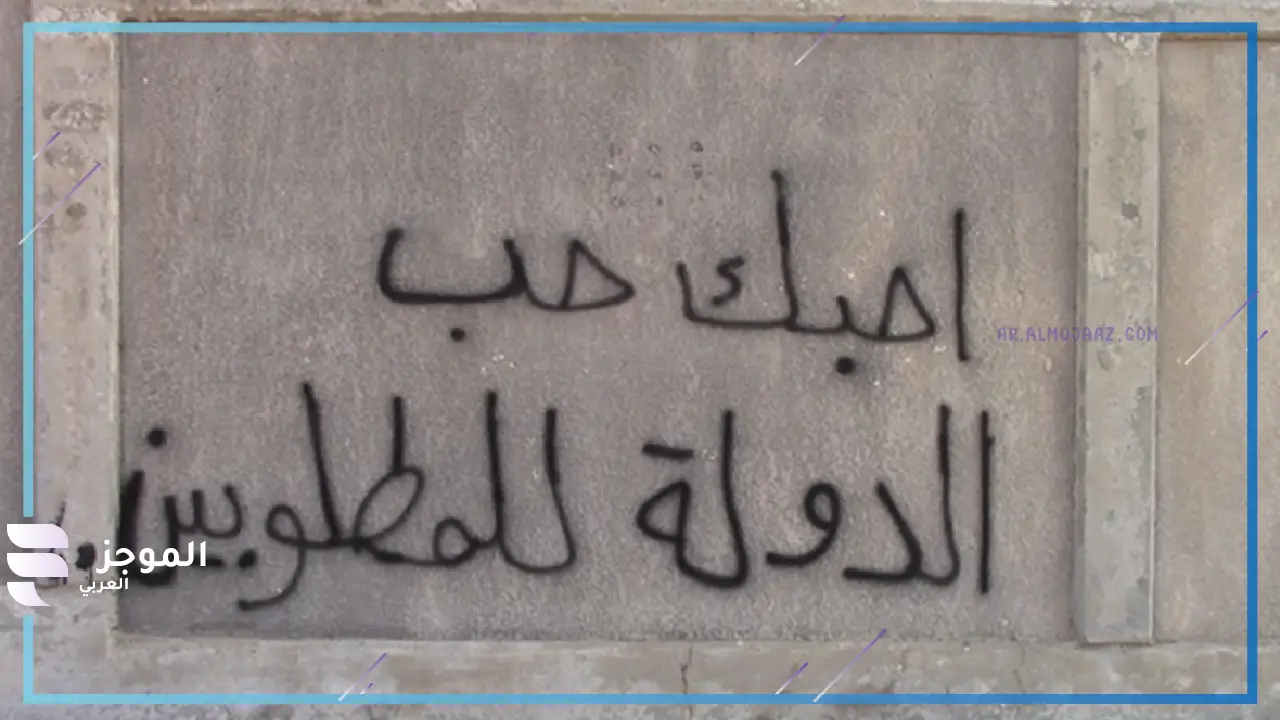 احبك حب
الدولة للمطلوبين
AR.ALMOJAAZ.COM
الموجز
العربي